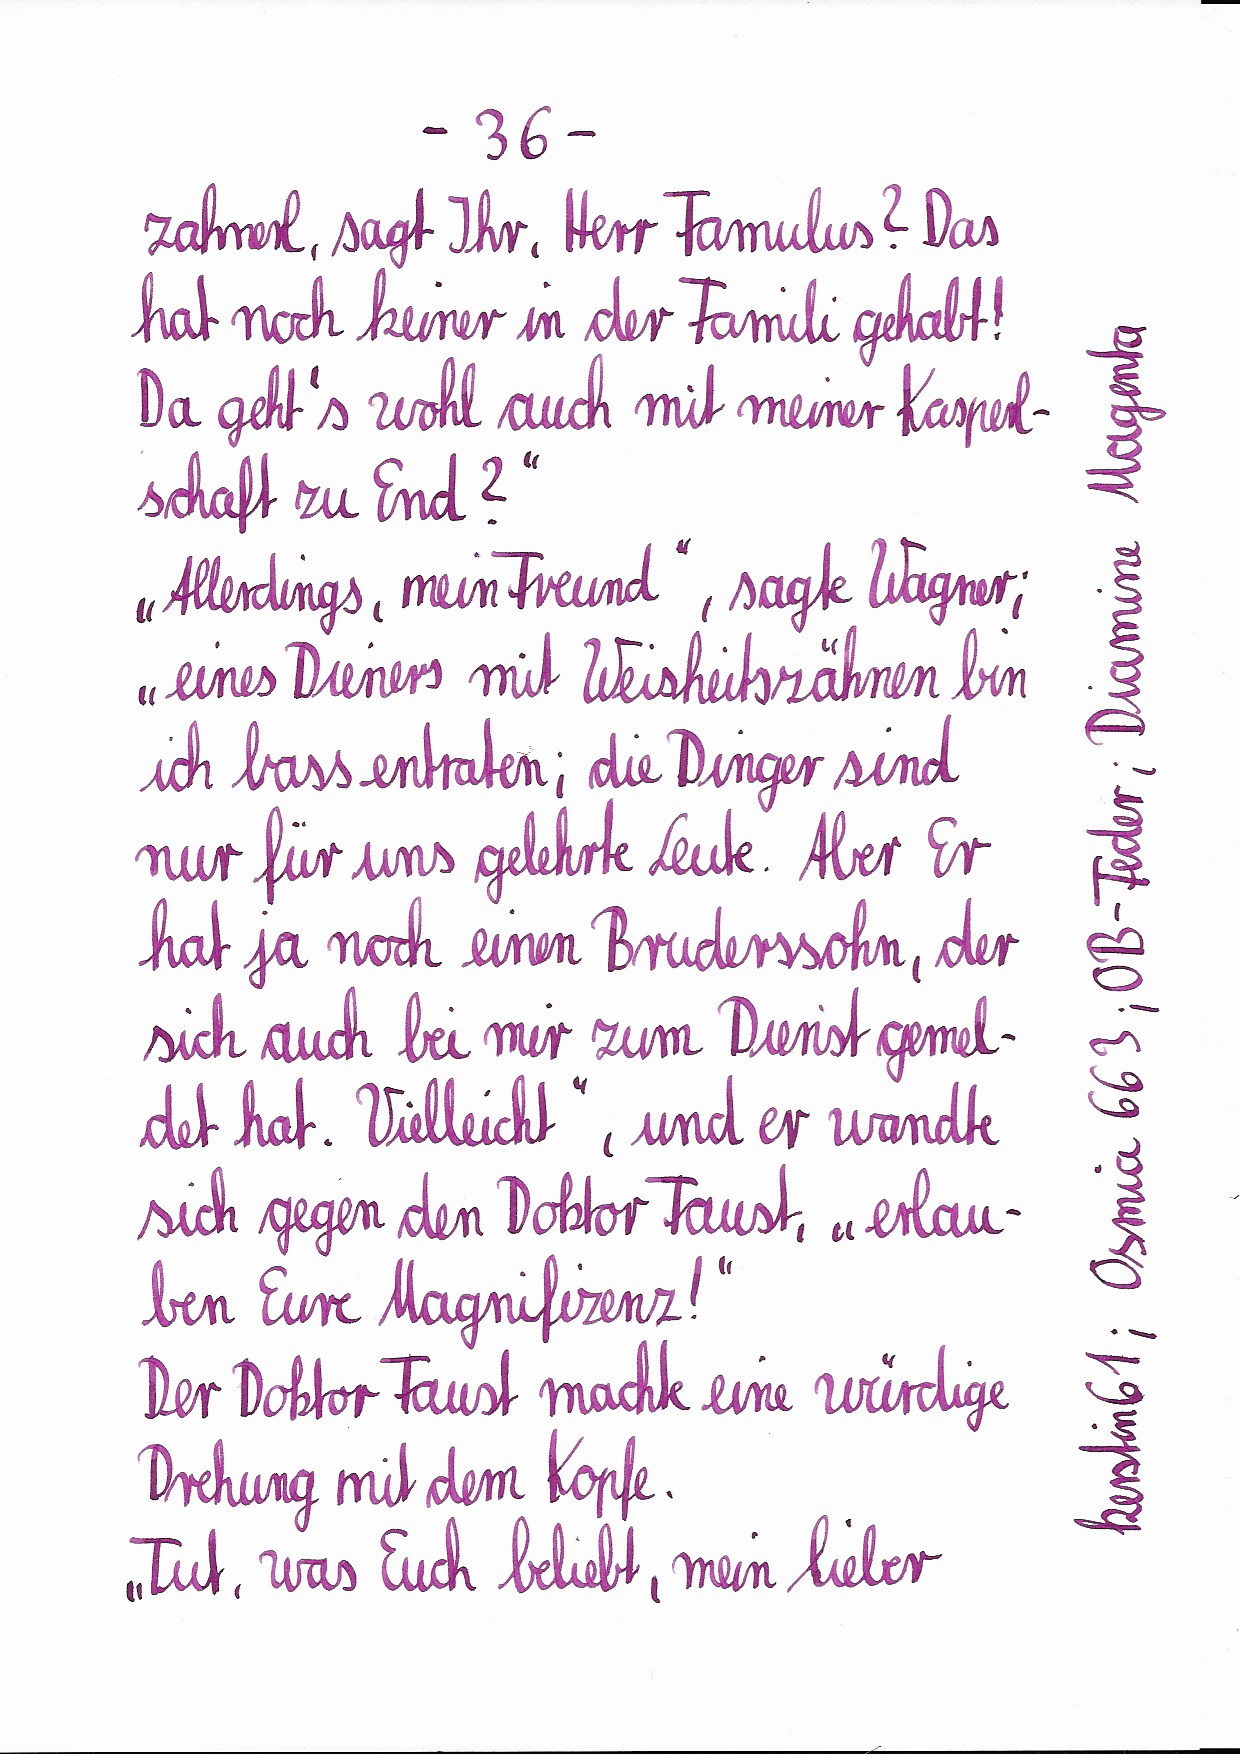 - 36 -
zahnerl, sagt Ihr, Herr Famulus? Das
hat noch keiner in der Famili gehabt!
Da geht's wohl auch mit meiner Kasperl-
schaft zu End?“
„Allerdings, mein Freund“, sagte Wagner;
„eines Dieners mit Weisheitszähnen bin
ich bass entraten; die Dinger sind
nur für uns gelehrte Leute. Aber Er
hat ja noch einen Bruderssohn, der
sich auch bei mir zum Dienst gemel-
det hat. Vielleicht“, und er wandte
sich gegen den Doktor Faust, „erlau-
ben Eure Magnifizenz!“
Der Doktor Faust machte eine würdige
Drehung mit dem Kopfe.
„Tut, was Euch beliebt, mein lieber
kerstin61; Osmia 663; OB-Feder; Diamine Magenta